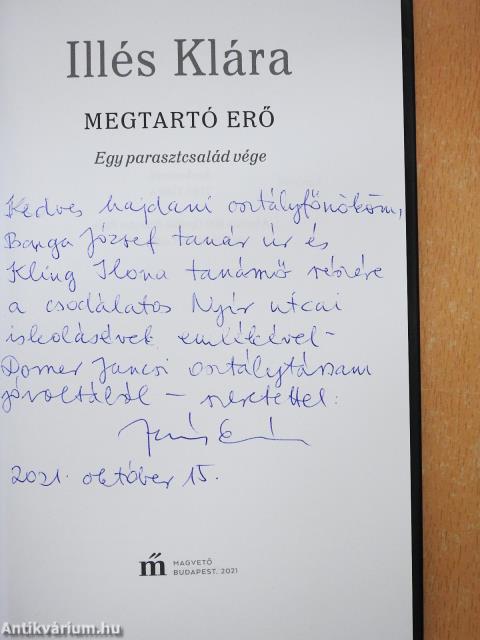 Illés Klára
MEGTARTÓ ERŐ
Egy parasztcsalád vége
Kedves hajdani osztályfőnököm,
Banga József tanár úr és
Kling Ilona tanárnő részére
a csodálatos Nyár utcai
iskolásévek emlékével –
Dorner Jancsi osztálytársam
jóvoltából – szeretettel:
2021. október 15.
MAGVETŐ
BUDAPEST, 2021
Antikvárium.hu